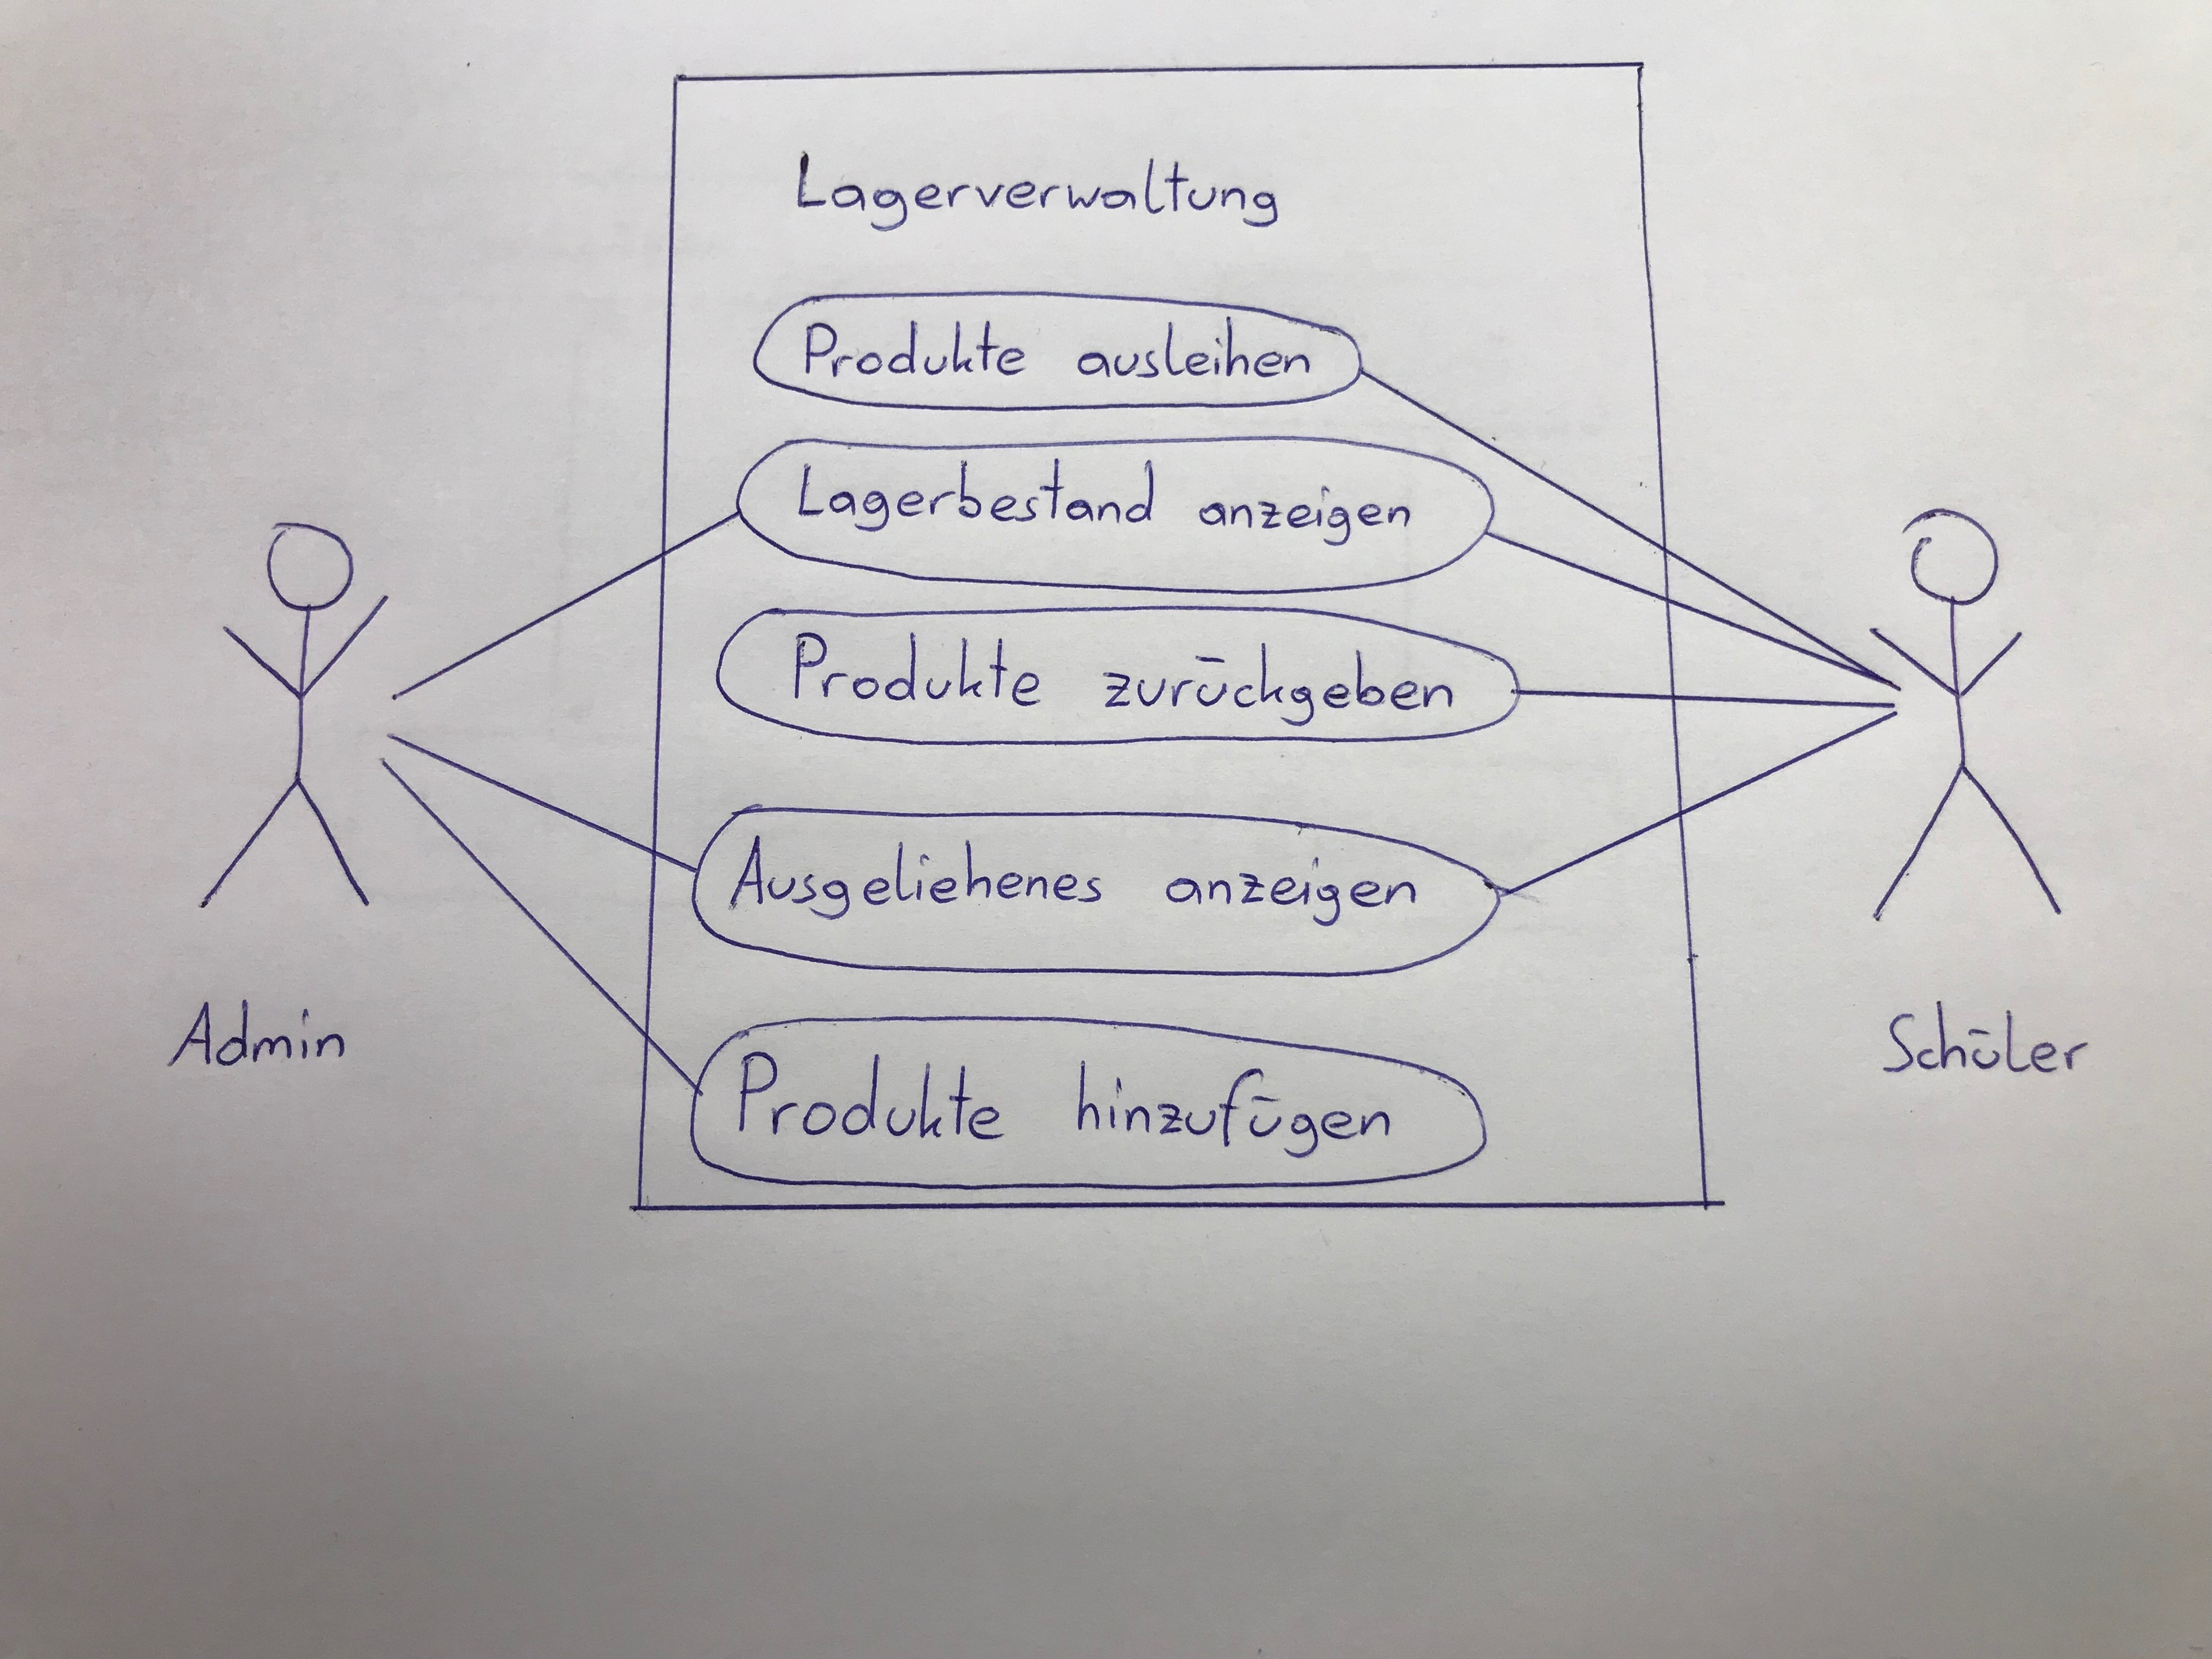 Lagerverwaltung
Produkte ausleihen
Lagerbestand anzeigen
Produkte zurückgeben
Ausgeliehenes anzeigen
Produkte hinzufügen
Admin
Schüler